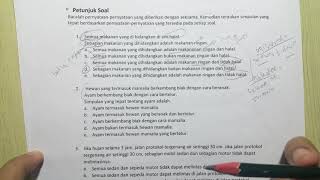 Petunjuk Soal
Bacalah pernyataan-pernyataan yang diberikan dengan seksama. Kemudian tentukan simpulan yang
tepat berdasarkan pernyataan-pernyataan yang tersedia pada setiap soal.
1. Semua makanan yang di bidangkan di sini halal.
Sebagian makanan yang dihidangkan adalah makanan ringan.
a. Semua makanan yang dihidangkan adalah makanan ringan dan halal.
b. Sebagian makanan yang dihidangkan adalah makanan ringan dan halal.
c. Semua makanan yang dihidangkan bukan makanan ringan dan tidak halal.
d. Sebagian makanan yang dihidangkan bukan makanan ringan dan halal.
e. Sebagian makanan yang dihidangkan adalah makanan ringan dan tidak halal.
2. Hewan yang termasuk mamalia berkembang biak dengan cara beranak.
Ayam berkembang biak dengan cara bertelur.
Simpulan yang tepat tentang ayam adalah
a. Ayam termasuk hewan mamalia.
b. Ayam termasuk hewan yang beranak dan bertelur.
c. Ayam berkembang biak dengan cara bertelur.
d. Ayam bukan hewan mamalia.
e. Ayam termasuk hewan mamalia yang bertelur.
3. Jika hujan selama 3 jam, jalan protokol tergenang air setinggi 30 cm. Jika jalan protokol
tergenang air setinggi 30 cm, sebagian mobil sedan dan sebagian motor tidak dapat
melintasinya.
a. Semua sedan dan sepeda motor tidak dapat melintasi
b. Semua sedan dan sepeda motor